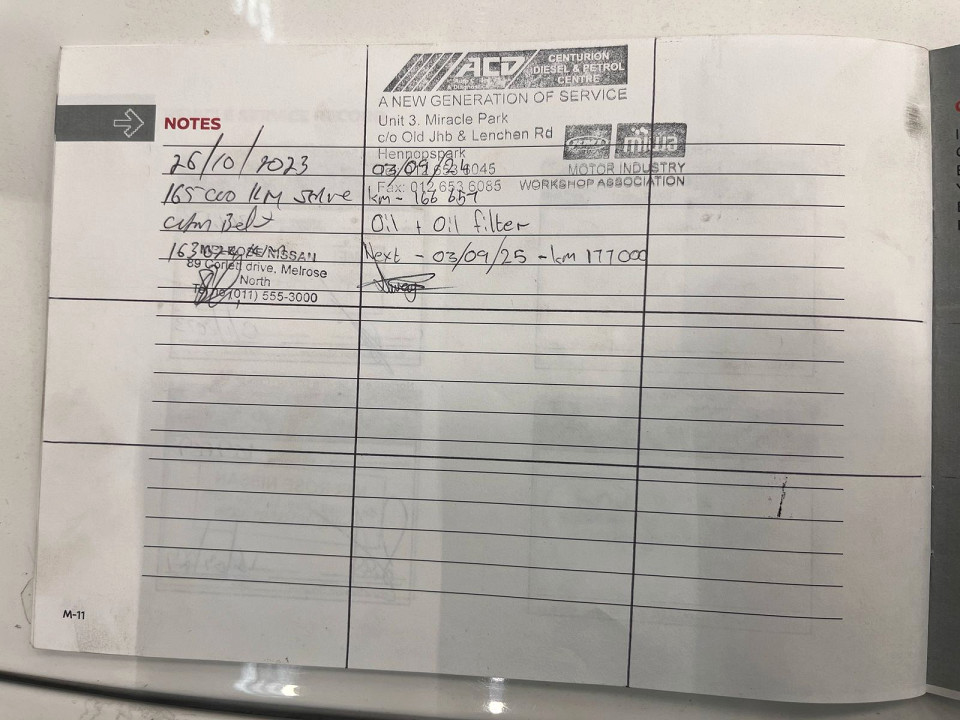 NOTES
26/10/2023
165000 KM
Belt
MELROSE NISSAN
89 Corlett drive, Melrose
North
Tel no (011) 555-3000
ACD
CENTURION
DIESEL & PETROL
CENTRE
A NEW GENERATION OF SERVICE
Unit 3. Miracle Park
c/o Old Jhb & Lenchen Rd
Hennopspark
012 653 6045
Fax: 012 653 6085
miwa
MOTOR INDUSTRY
WORKSHOP ASSOCIATION
03/09/24
km - 166 657
Oil + Oil filter
Next - 03/09/25 - km 177000
M-11